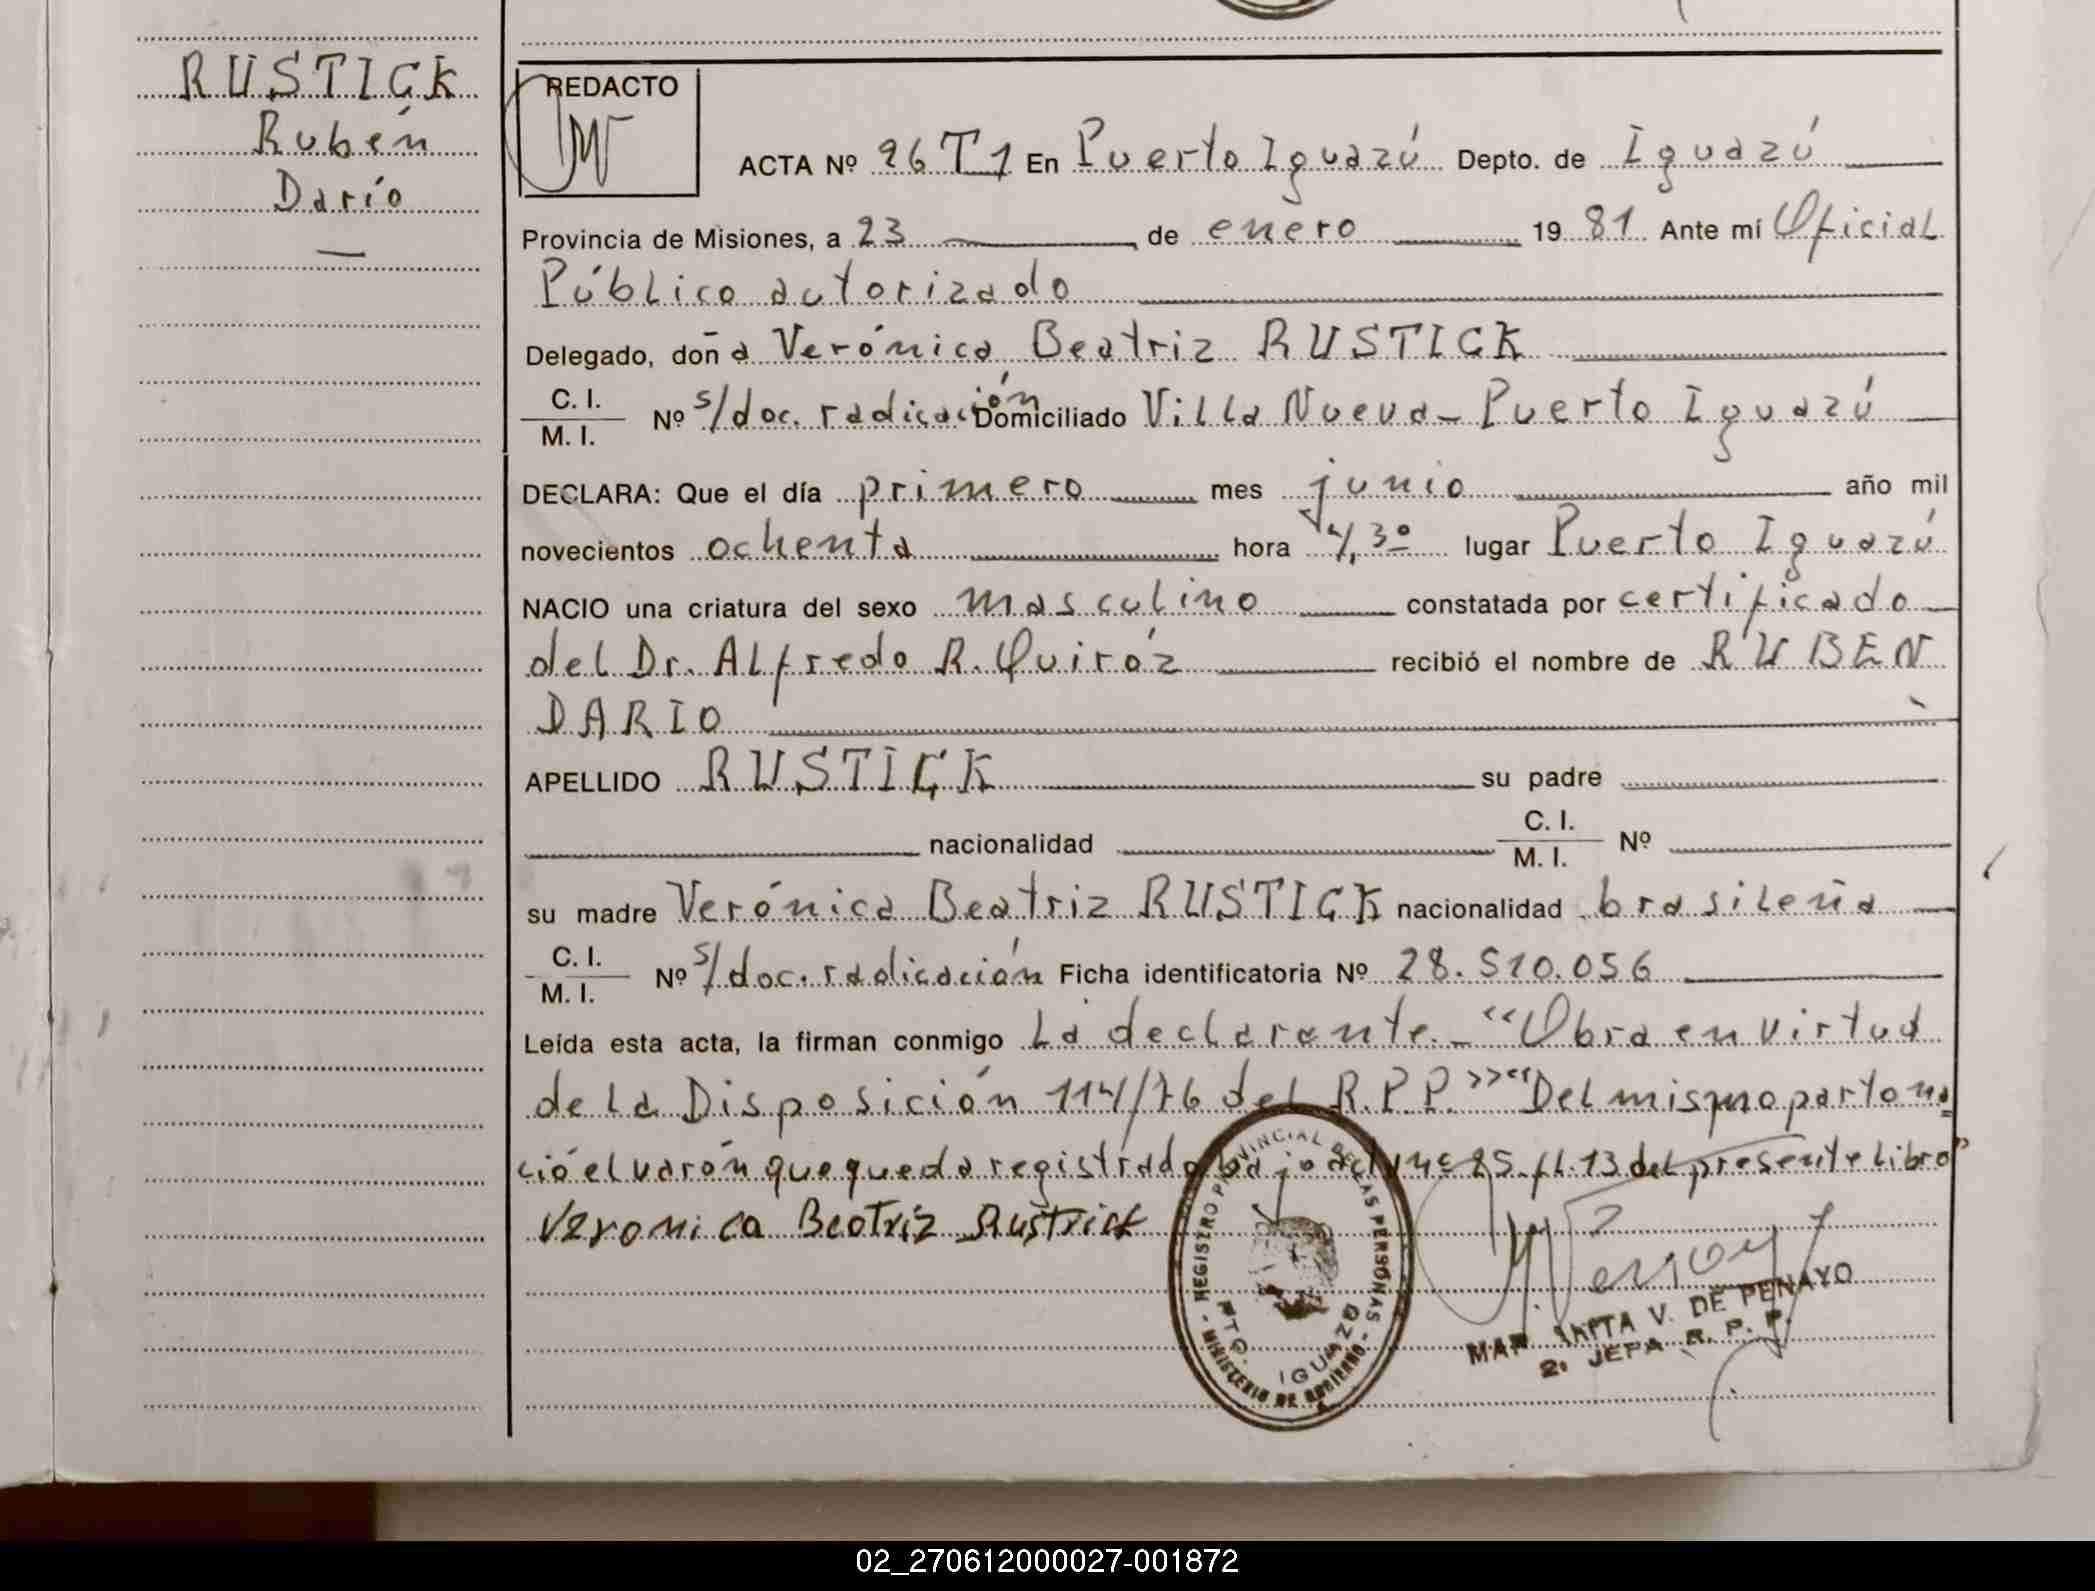 RUSTICK
Rubén
Darío
—
REDACTO
ACTA Nº 26 T1 En Puerto Iguazú Depto. de Iguazú
Provincia de Misiones, a 23 de enero 1981 Ante mí Oficial
Público autorizado
Delegado, doña Verónica Beatriz RUSTICK
C. I.
M. I. Nº s/doc. radicación Domiciliado Villa Nueva - Puerto Iguazú
DECLARA: Que el día primero mes junio año mil
novecientos ochenta hora 4,30 lugar Puerto Iguazú
NACIO una criatura del sexo masculino constatada por certificado
del Dr. Alfredo R. Quiróz recibió el nombre de RUBEN
DARIO
APELLIDO RUSTICK su padre
nacionalidad C. I.
M. I. Nº
su madre Verónica Beatriz RUSTICK nacionalidad brasileña
C. I.
M. I. Nº s/doc. radicación Ficha identificatoria Nº 28.510.056
Leída esta acta, la firman conmigo la declarante.- "Obra en virtud
de la Disposición 114/76 del R.P.P." "Del mismo parto na=
ció el varón que queda registrado bajo acta nº 25. fl. 13 del presente libro"
Veronica Beatriz Rustrick
REGISTRO PROVINCIAL DE LAS PERSONAS
PTO. IGUAZU
- MINISTERIO DE GOBIERNO -
V. DE PENAYO
2. JEFA R. P. P.
02_270612000027-001872